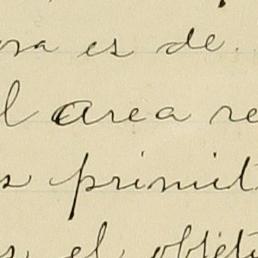 ora es de
l area re
s primit
s el objet